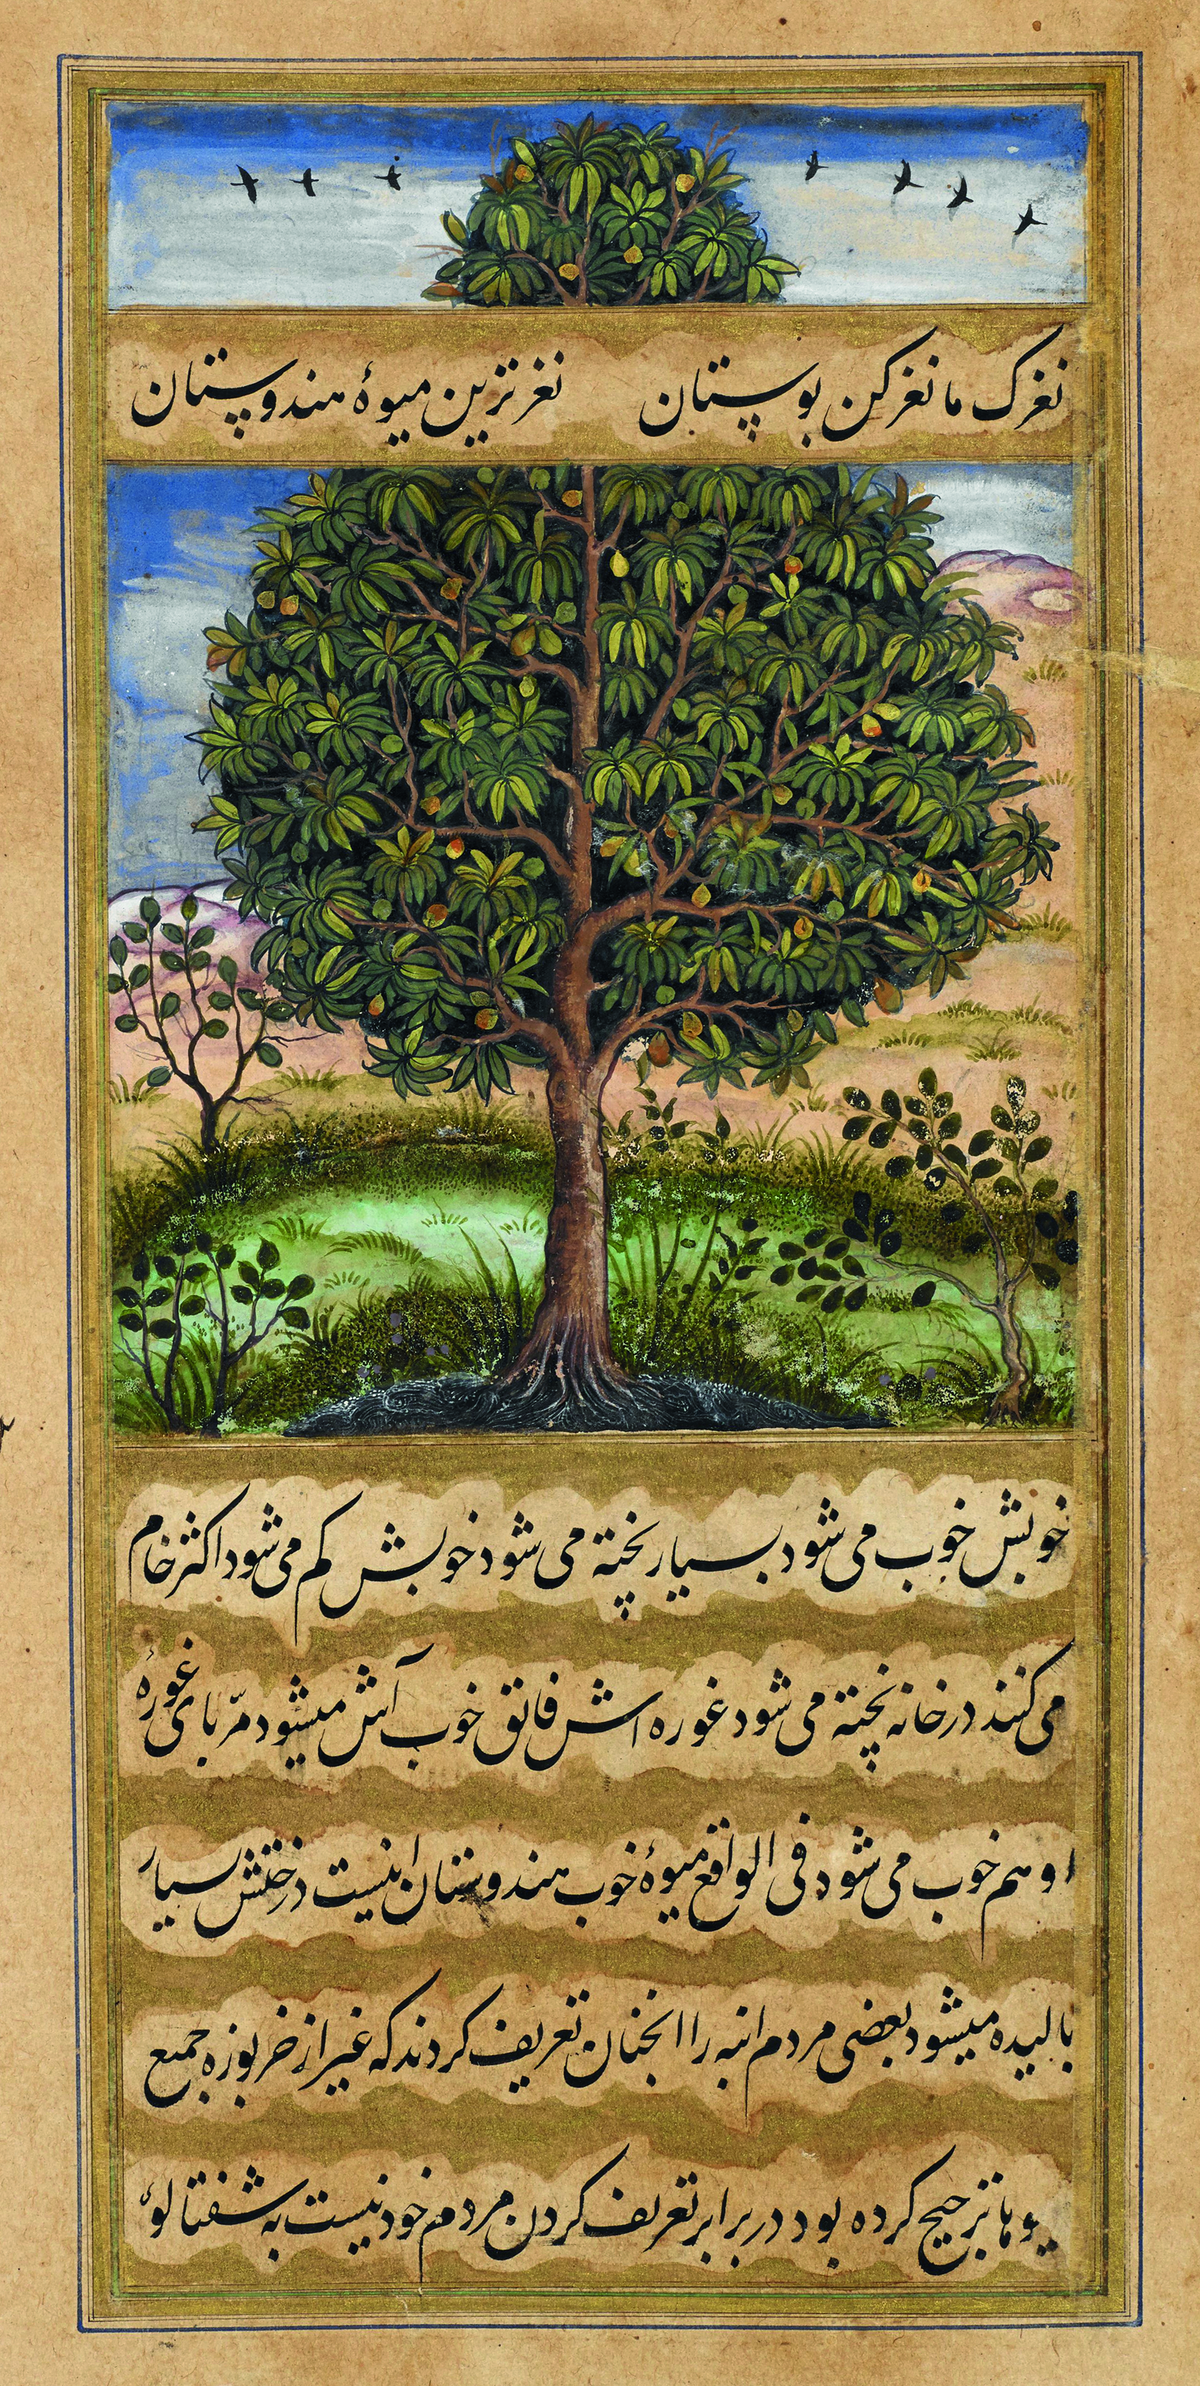 نغزک ما نغز کن بوستان نغز ترین میوۀ هندوستان
خوبش خوب می شود بسیار پخته می شود خوبش کم می شود اکثر خام
می کنند در خانه پخته می شود غوره اش فاتق خوب آش میشود مربّای غورۀ
او هم خوب می شود فی الواقع میوۀ خوب هندوستان اینست درختش بسیار
بالیده میشود بعضی مردم انبه را انچنان تعریف کردند که غیر از خربوزه جمیع
یوها ترجیح کرده بود در برابر تعریف کردن مردم خود نیست به شفتالوئ